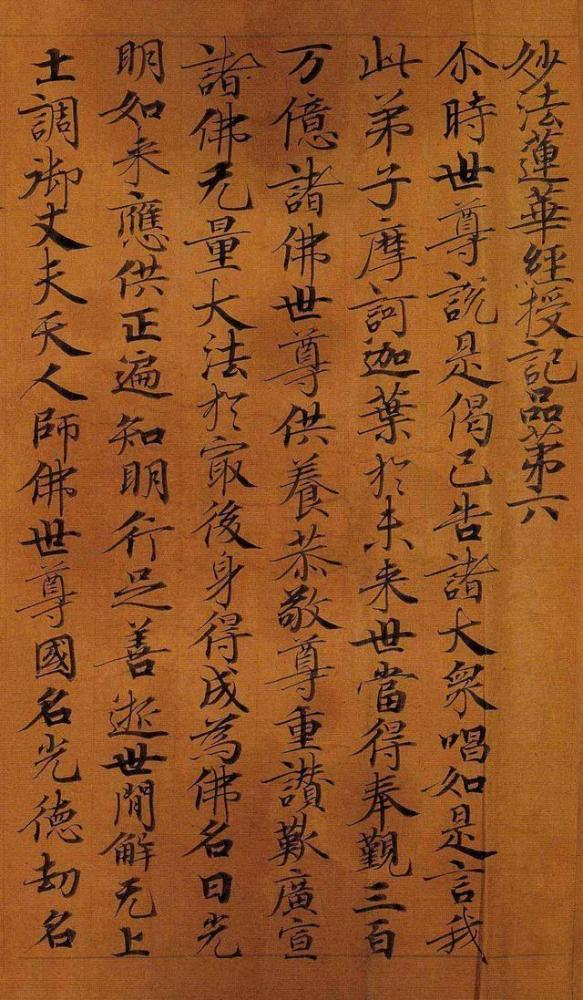 妙法蓮華經授記品第六
尒時世尊說是偈已告諸大衆唱如是言我
此弟子摩訶迦葉於未来世當得奉覲三百
万億諸佛世尊供養恭敬尊重讃歎廣宣
諸佛无量大法於冣後身得成為佛名曰光
明如来應供正遍知明行足善逝世間解无上
士調御丈夫天人師佛世尊國名光徳劫名